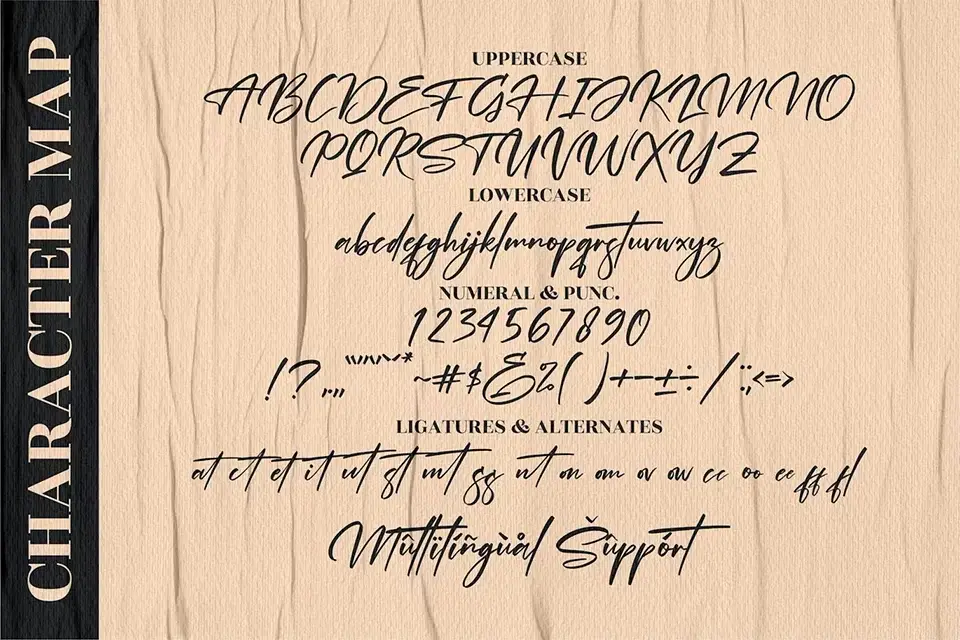 CHARACTER MAP
UPPERCASE
ABCDEFGHIJKLMNO
PQRSTUVWXYZ
LOWERCASE
abcdefghijklmnopqrstuvwxyz
NUMERAL & PUNC.
1234567890
~#$&%()+-±÷/:;<=>
LIGATURES & ALTERNATES
at ct et it ut st mt gg nt on om ov ow cc oo ee ff fl
Mûltïlíñgùål Šûppórt